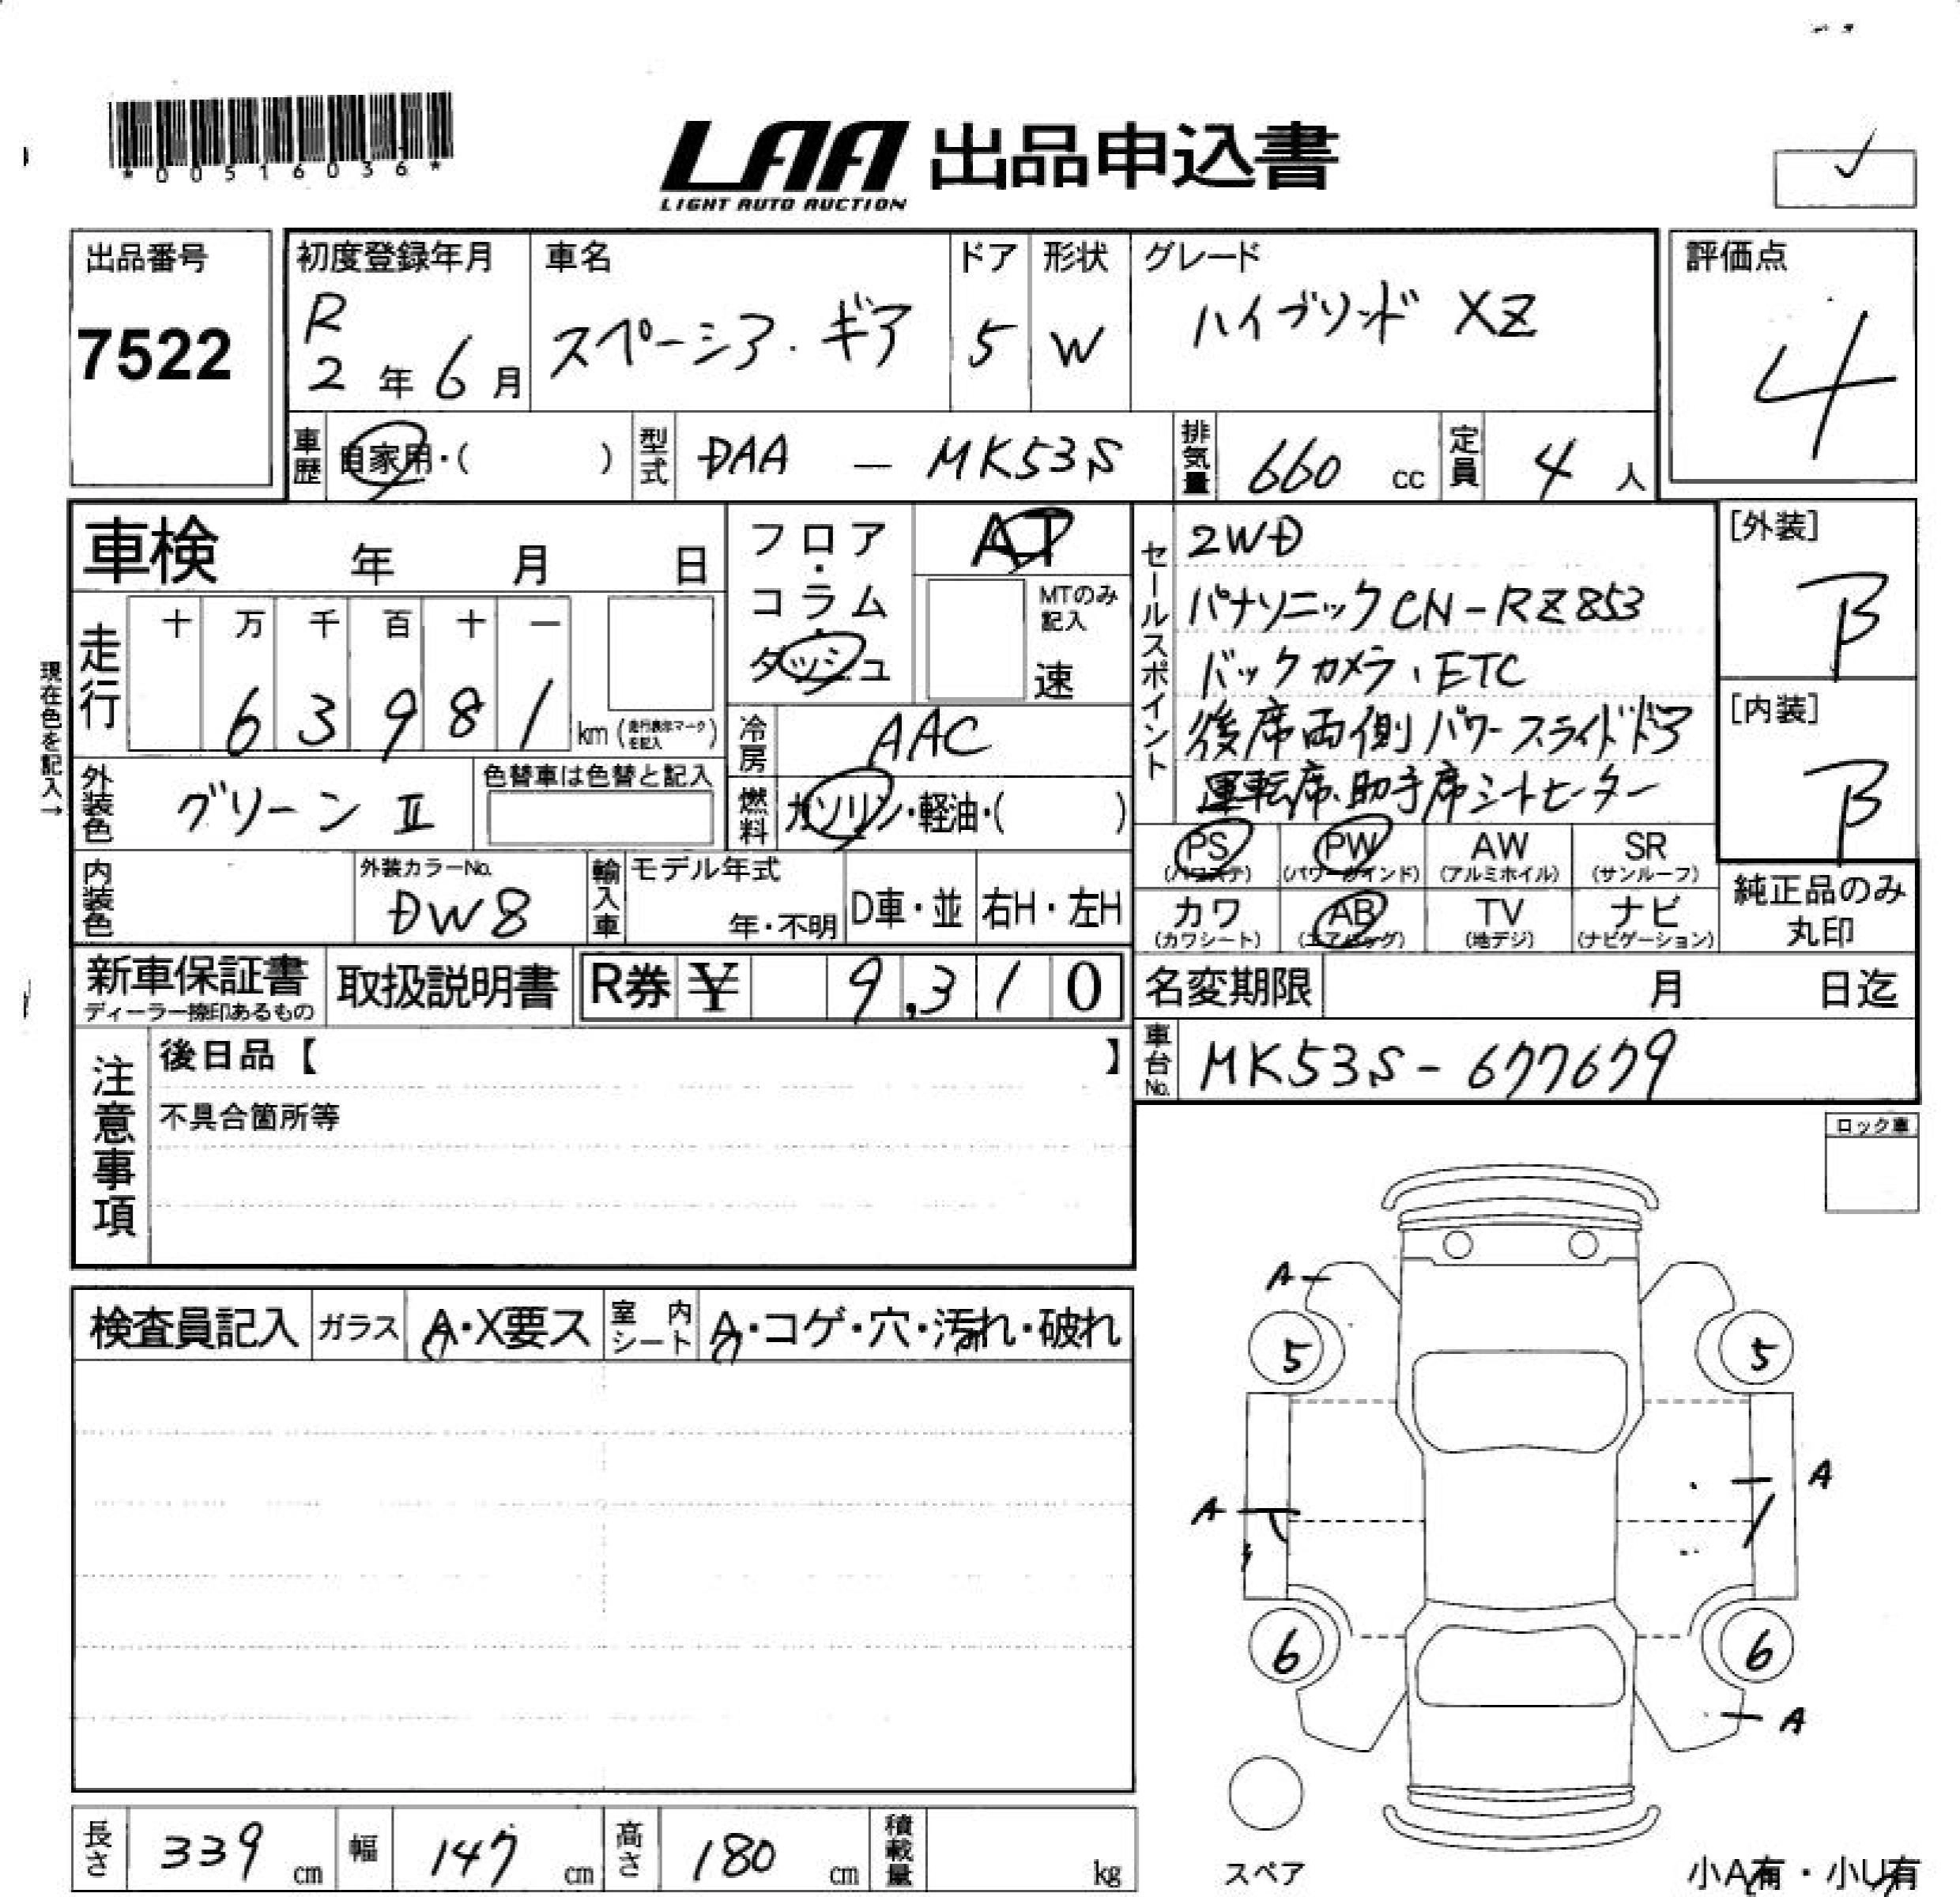 *00516036*
LAA 出品申込書
LIGHT AUTO AUCTION
出品番号
7522
初度登録年月
R
2年6月
車名
スペーシア・ギア
ドア
5
形状
W
グレード
ハイブリッド XZ
評価点
4
車歴
自家用・( )
型式
DAA - MK53S
排気量
660 cc
定員
4人
車検 年 月 日
現在色を記入→
走行
十 万 千 百 十 一
6 3 9 8 1 km
フロア・コラム・ダッシュ
AT
MTのみ記入
速
冷房
AAC
燃料
ガソリン・軽油・( )
セールスポイント
2WD
パナソニックCN-RZ853
バックカメラ、ETC
後席両側パワースライドドア
運転席、助手席シートヒーター
[外装]
B
[内装]
B
外装色
グリーンⅡ
色替車は色替と記入
内装色
外装カラーNo.
DW8
輸入車
モデル年式
年・不明
D車・並
右H・左H
PS
(パワステ)
PW
(パワーウインド)
AW
(アルミホイル)
SR
(サンルーフ)
カワ
(カワシート)
AB
(エアバッグ)
TV
(地デジ)
ナビ
(ナビゲーション)
純正品のみ
丸印
新車保証書
ディーラー捺印あるもの
取扱説明書
R券 ¥ 9,310
名変期限 月 日迄
車台No.
MK53S-677679
注意事項
後日品【 】
不具合箇所等
ロック車
検査員記入
ガラス
A・X要ス
室内シート
A・コゲ・穴・汚れ・破れ
A
5
5
A
A
6
6
A
スペア
小A有・小U有
長さ 339 cm
幅 147 cm
高さ 180 cm
積載量 kg